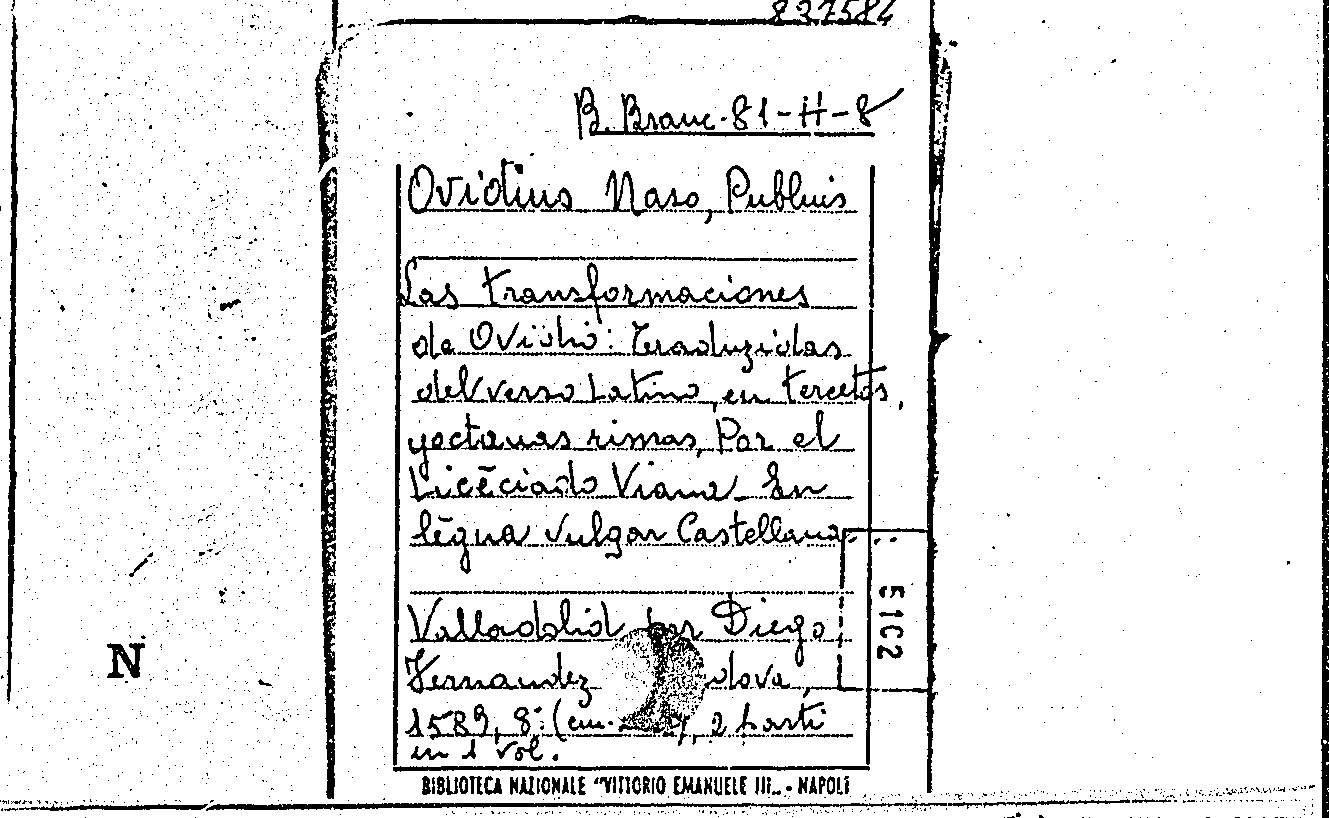 837584
B. Branc. 81-H-8
Ovidius Naso, Publius
Las transformaciones
de Ovidio: Traduzidas
del verso Latino, en tercetos,
yoctauas rimas, Por el
Licẽciado Viana. En
lẽgua vulgar Castellana...
Valladolid por Diego
Fernandez dova,
1589, 8° (cm. 2 parti
in 1 vol.
51C2
N
BIBLIOTECA NAZIONALE "VITTORIO EMANUELE III„ - NAPOLI